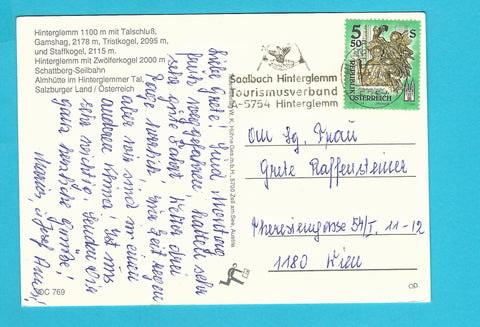 Hinterglemm 1100 m mit Talschluß,
Gamshag, 2178 m, Tristkogel, 2095 m,
und Staffkogel, 2115 m.
Hinterglemm mit Zwölferkogel 2000 m
Schattberg-Seilbahn
Almhütte im Hinterglemmer Tal.
Salzburger Land / Österreich
Liebe Grete! Sind Montag
früh weggefahren, hatten sehr
sehr gute Fahrt. Hatten drei
Tage
aber wir sind in einem
anderen Klima! Ist uns
sehr wichtig. Senden Dir
ganz herzliche Grüße!
Maria, Josef
DC 769
W. K. Hühne Ges.m.b.H., 5700 Zell am See, Austria
Saalbach Hinterglemm
Tourismusverband
A-5754 Hinterglemm
5 50 S
REPUBLIK
ÖSTERREICH
An Sg. Frau
Grete Raffensteiner
Theresiengasse 54/I, 11-12
1180 Wien